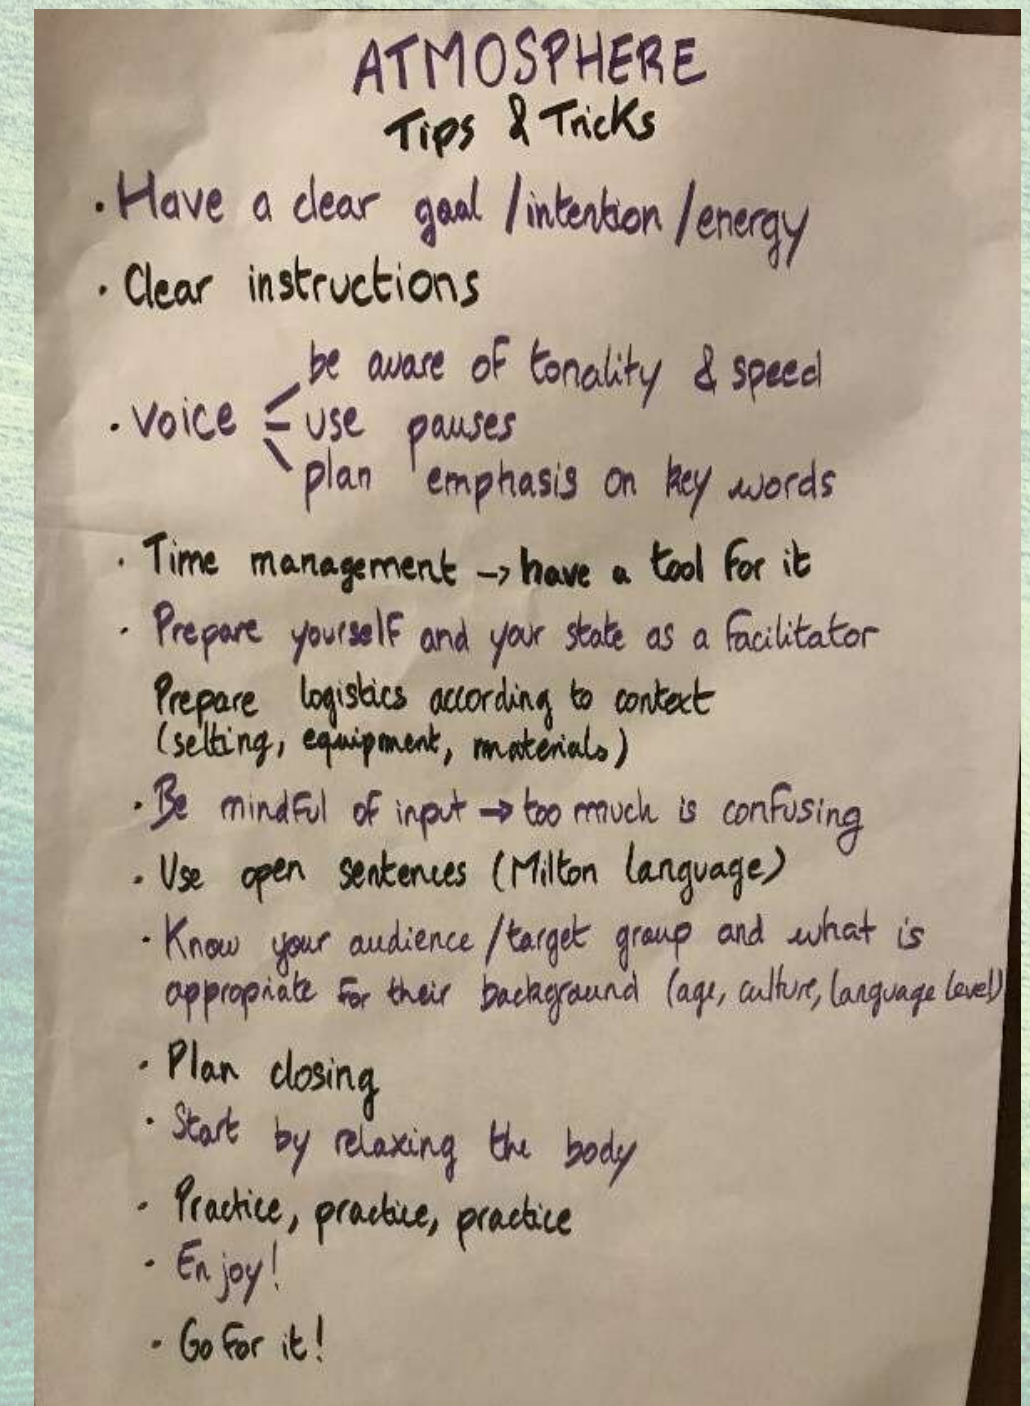 ATMOSPHERE
Tips & Tricks
· Have a clear goal / intention / energy
· Clear instructions
be aware of tonality & speed
· Voice use pauses
plan emphasis on key words
· Time management → have a tool for it
· Prepare yourself and your state as a facilitator
Prepare logistics according to context
(setting, equipment, materials)
· Be mindful of input → too much is confusing
· Use open sentences (Milton language)
· Know your audience / target group and what is
appropriate for their background (age, culture, language level)
· Plan closing
· Start by relaxing the body
· Practice, practice, practice
· Enjoy!
· Go for it!